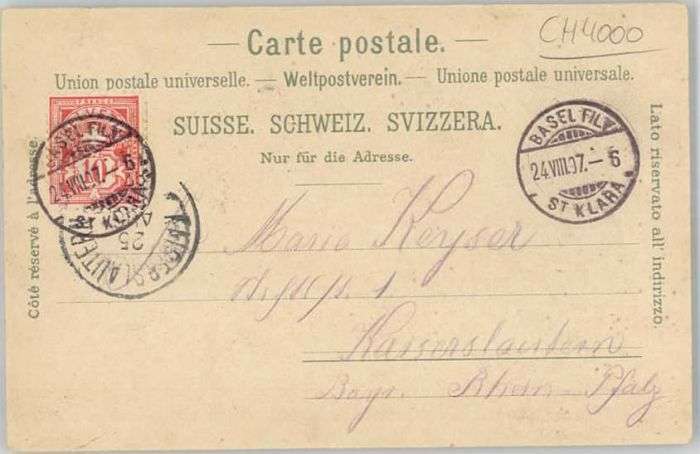 CH4000
— Carte postale. —
Union postale universelle. — Weltpostverein. — Unione postale universale.
SUISSE. SCHWEIZ. SVIZZERA.
Nur für die Adresse.
Côté réservé à l'adresse.
Lato riservato all' indirizzo.
BASEL FIL.
24.VIII.97.– 6
ST KLARA
BASEL FIL.
24.VIII.97.– 6
ST KLARA
10
25
KAISERSLAUTERN
Maria Keyser
Kaiserslautern
Bayr. Rhein-Pfalz